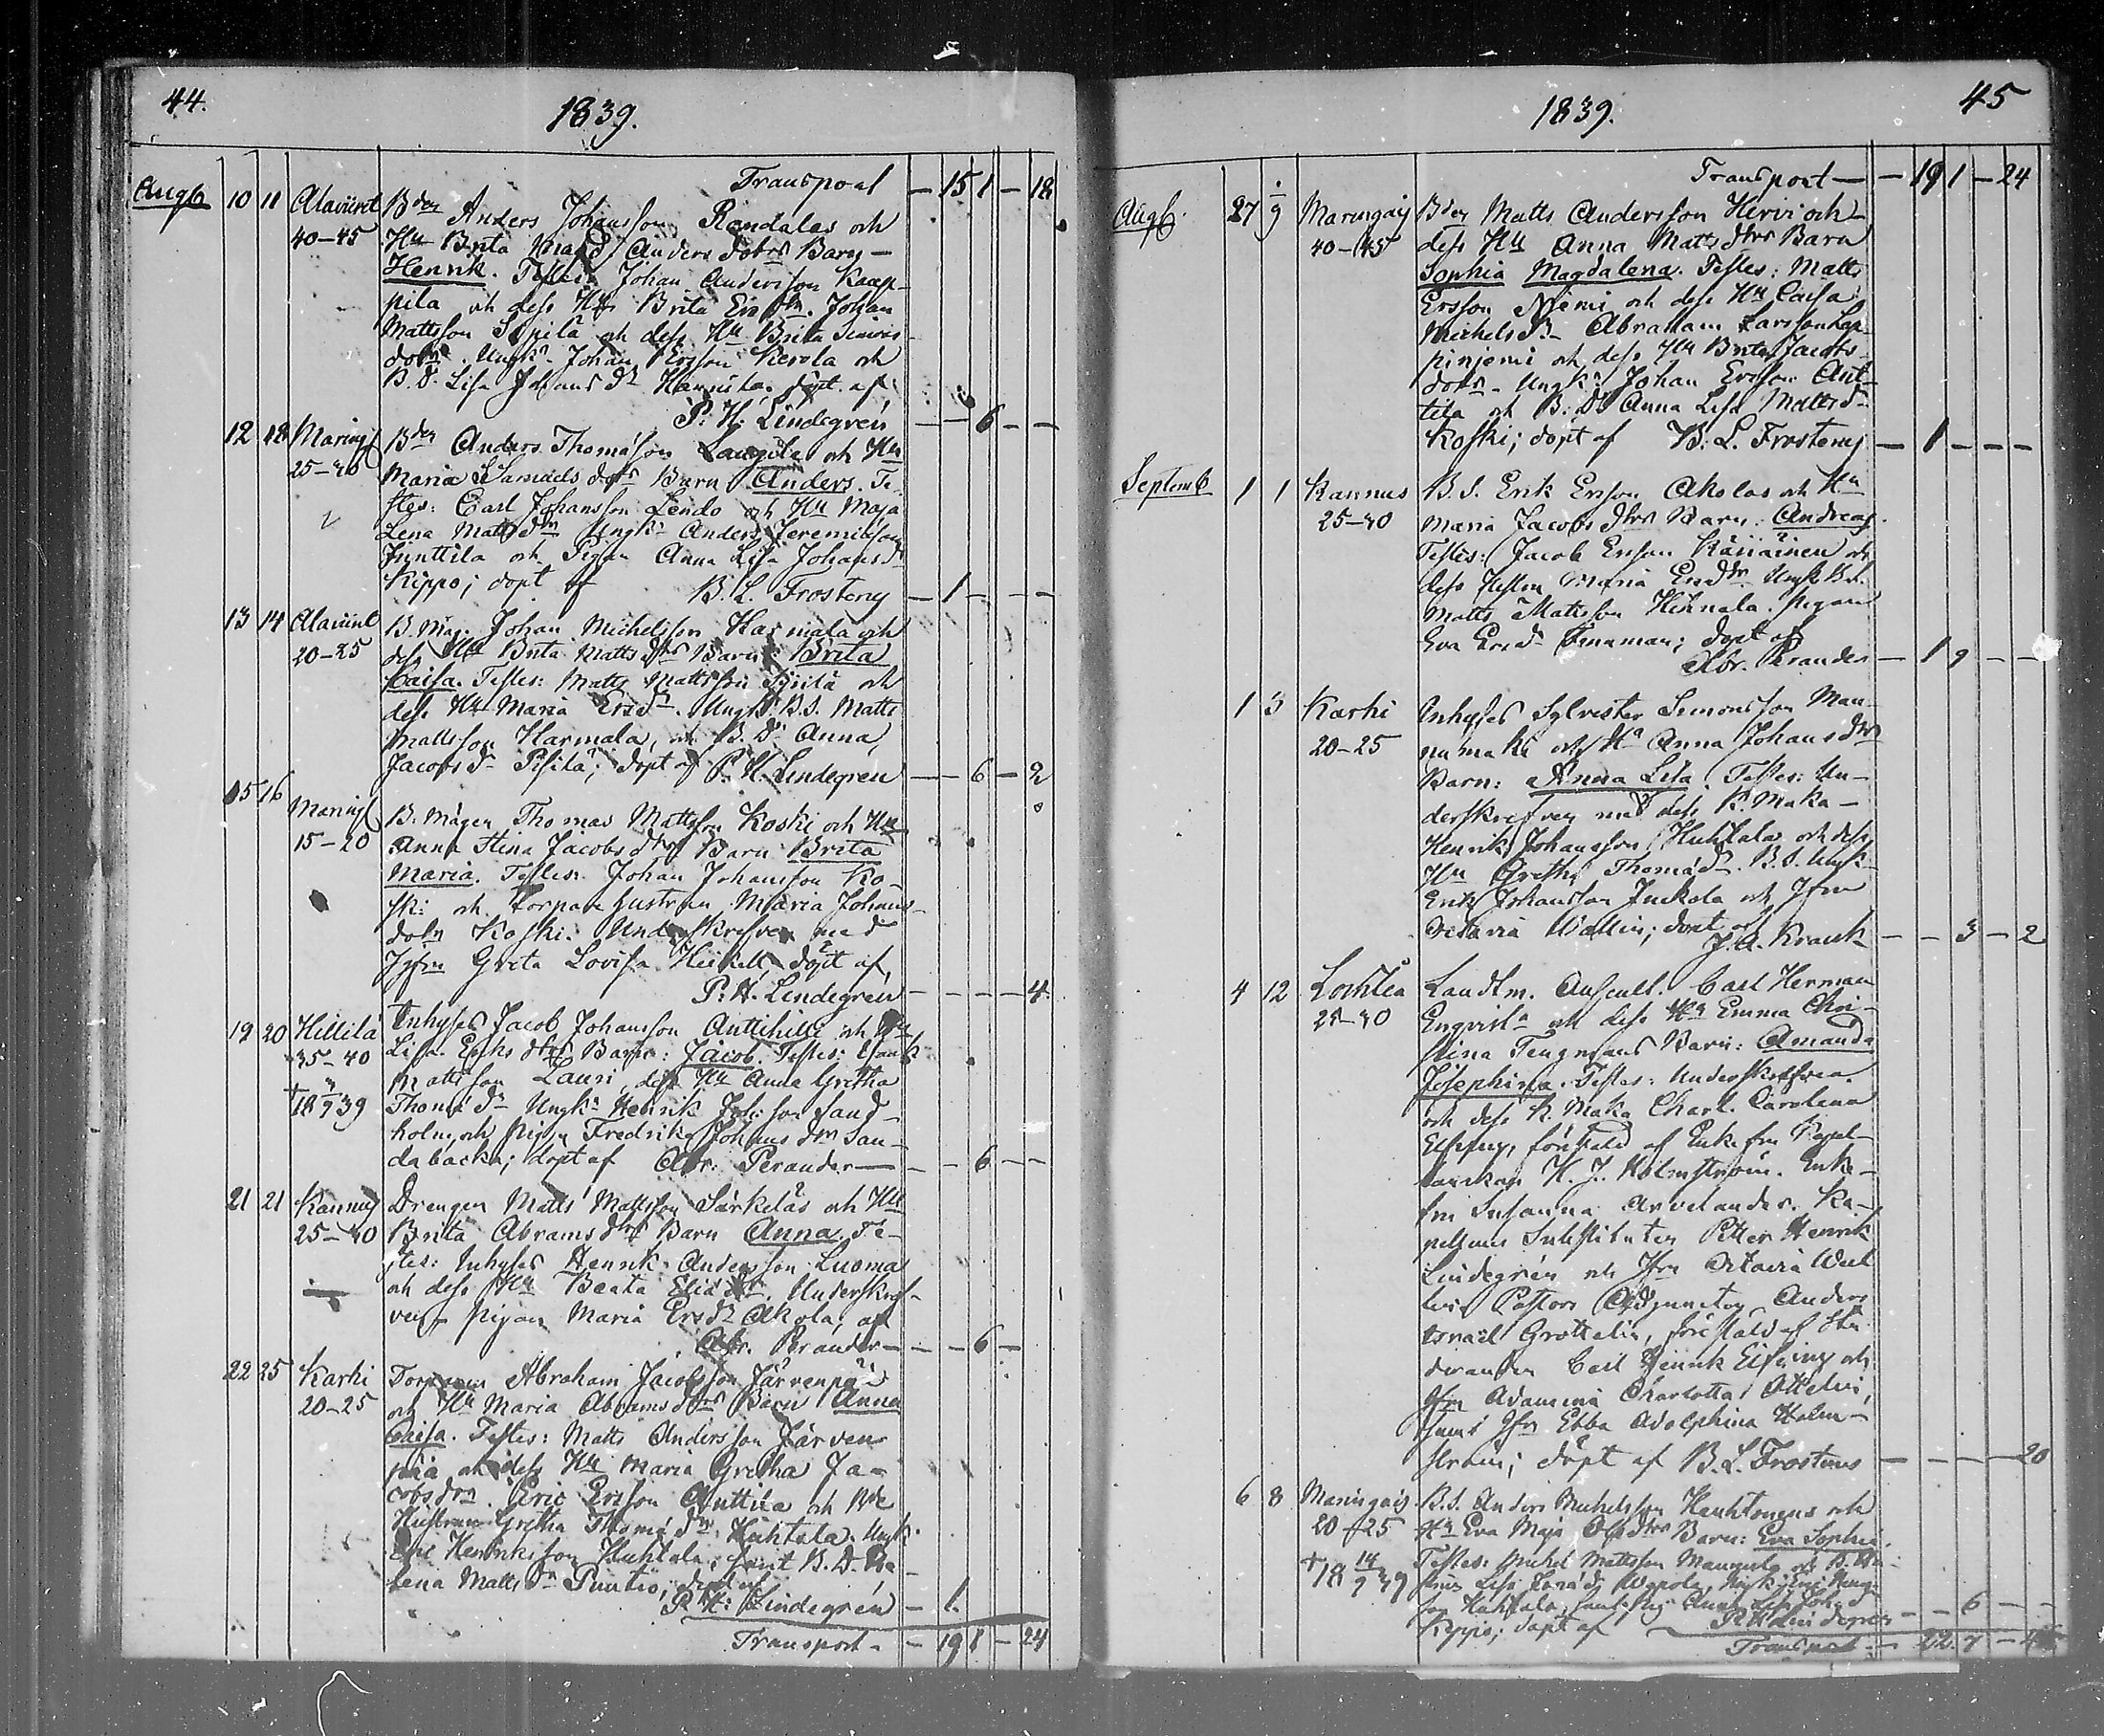 44.
1839.
Transport — 15 1 — 18
Augb 10 11 Alaviirt Bden Anders Johansson Randalas och
40–45 Hu Brita Anders dotrs Barn –
Henrik. Testes: Johan Andersson Kaap-
pila och dess Hu Brita Ers dr. Johan
Mattsson Sipilä och dess Hu Brita Simons
dotr. Ungkn Johan Ersson Kerola och
B.D. Lisa Johans dr Hannila. döpt af
P. H. Lindegrén — — 6 — —
12 18 Maringf Bden Anders Thomasson Laugila och Hu
25–30 Maria Samuels dotrs Barn Anders. Te-
stes: Carl Johansson Lindo och Hu Maja
Lena Matts dr Ungkn Anders Jeremiisson
Junttila och Pigan Anna Lisa Johans dr
Kippo; döpt af B. L. Frosterus — 1 — — —
13 14 Alaviirt B. Måg. Johan Michelsson Harmala och
20–25 dess Hu Brita Matts dtrs Barn: Brita
Caisa. Testes: Matts Mattsson och
dess Hu Maria Ersdr. Ungk. B.S. Matts
Mattsson Harmala, och B. Dr Anna
Jacobs dr döpt af P. H. Lindegrén — — 6 — 2
15 16
Maringf B. Mågen Thomas Mattsson Koski och Hu
15–20 Anna Stina Jacobs dtrs Barn Brita
Maria. Testes: Johan Johansson Ko-
ski och Torpare hustrun Maria Johans-
dotr Koski. Underskrefven med
Jgfrn Greta Lovisa Heikell, döpt af,
P. H. Lindegrén — — — — 4
19 20 Hillilä Inhyses Jacob Johansson Anttihilli och Hu
35–40 Lisa Eriks dtrs Barn: Jacob. Testes: Isaak
Mattsson Lauri, dess Hu Anna Gretha
† 18 9 39 Thomæ dr Ungkn Henrik Joh:son Sand-
holm och Pigan Fredrika Johans dtr San-
dabacka; döpt af Abr. Perander — — — 6 — —
21 21 Kannus Drengen Matts Mattsson Särkeläs och Hu
25–30 Brita Abrams dtrs Barn Anna. Te-
stes: Inhyses Henrik Andersson Luoma
och dess Hu Beata Elias dr. Underskref-
ven pigan Maria Ersdr Akola, af
Abr. Perander — — — 6 —
22 25 Karhi Torparen Abraham Jacobsson Järvenpää
20–25 och Hu Maria Abrams dtrs Barn Anna
Caisa. Testes: Matts Andersson Järven-
pää och dess Hu Maria Gretha Ja-
cobs dtr. Eric Ersson Anttila och Bde
Hustrun Gretha Thomæ dr. Huhtala. Ungk.
Eric Henriksson Huhtala; samt B.D.
Lena Matts dr Puutio; döpt af
P. H: Lindegrén — 1.
Transport — — 19 1 — 24
45
1839.
Transport — — 19 1 — 24
Augb. 27 1/9 Maringais Bden Matts Andersson Hirvi och
40–45 dess Hu Anna Matts dtrs Barn
Sophia Magdalena. Testes: Matts
Ersson Njemi och dess Hu Caisa
Michels Dr. Abraham Larsson Lap-
pinjemi och dess Hu Brita Jacobs-
dotr. Ungkn Johan Ersson Ant-
tila och B: Dr Anna Lisa Matts dr
Koski; döpt af B. L. Frosterus — 1 — — —
Septemb 1 1 Kannus B. S. Erik Ersson Akolas och Hu
25–30 Maria Jacobs dtrs Barn: Andreas.
Testes: Jacob Ersson Käriäinen och
dess Hustru Maria Ersdtr. Ungk B.S.
Matts Mattsson Hihnala. Pigan
Eva Ersdr döpt af
Abr. Perander — 1 9 — —
1 3 Karhi Inhyses Sylvester Simonsson Man-
20–25 numäki och Hu Anna Johans dtrs
Barn: Anna Lisa. Testes: Un-
derskrefven med dess K. Maka –
Henrik Johansson Huhtala och dess
Hu Gretha Thomæ dr. B. S. Ungk
Erik Johansson Juckola och Jfrn
Octavia Wallin; döpt af
J. A. Krank — — 3 — 2
4 12 Lochteå Landtm. Auscult. Carl Herman
25–30 Enqvists och dess Hu Emma Chri-
stina Tengmans Barn: Amanda
Josephina. Testes: Underskrefven.
och dess K. Maka Charl. Carolina
Elfving, föreställd af Enkefru Kapel-
lanskan H. J. Holmström. Enke-
fru Susanna Arvelander. Ka-
pellans Substituten Petter Henrik
Lindegrén och Jfrn Octavia Wal-
lin Pastors Adjuncten Anders
Israel Grottelin, föreställd af Stu-
deranden Carl Henrik Elfving och
Jfrn Adamina Charlotta Ottelin,
samt Jfrn Ebba Adolphina Holm-
ström; döpt af B. L. Frosterus — — — — 20
6 8 Maringais B.S. Anders Michelsson Hanhtongus och
20–25 Hu Eva Maja Ols dtrs Barn: Eva Sophia.
† 18 14/9 39 Testes: Michel Mattsson och
Lisa
Huhtala, samt Pig: Anna Lisa Joh: d
Kippo; döpt af P H Lindegren — — 6 — —
Transport — 22 7 —